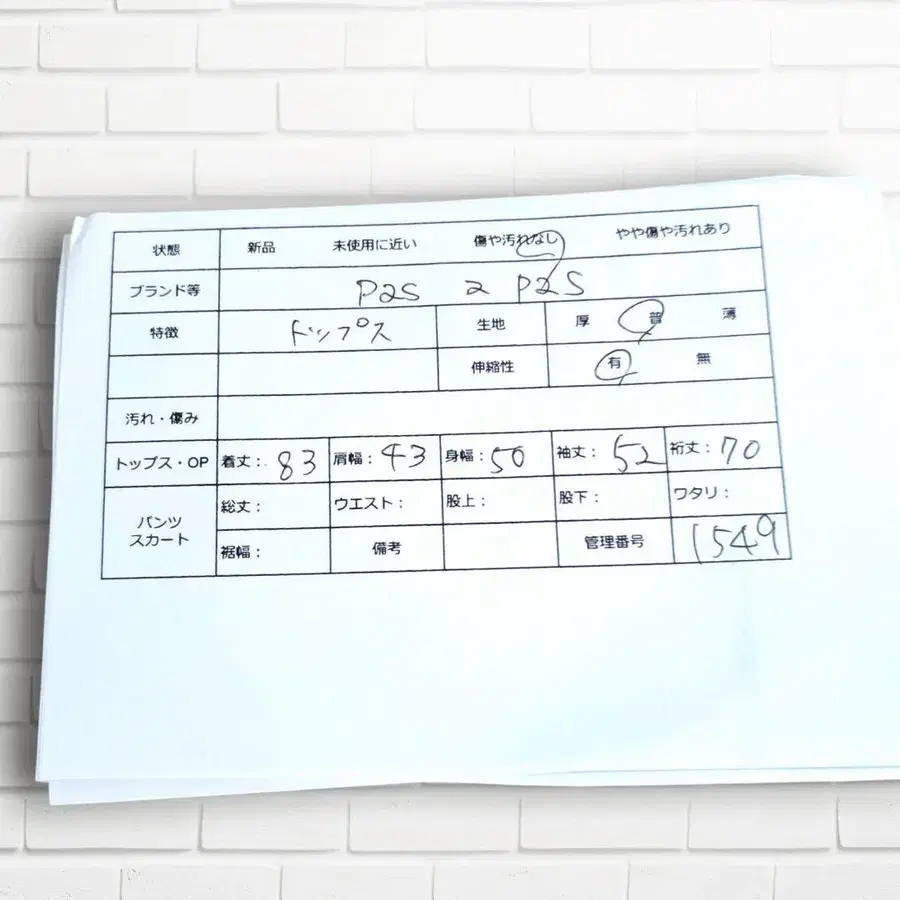 状態 新品 未使用に近い 傷や汚れなし やや傷や汚れあり
ブランド等 P2S 2 P2S
特徴 トップス 生地 厚 普 薄
伸縮性 有 無
汚れ・傷み
トップス・OP 着丈: 83 肩幅: 43 身幅: 50 袖丈: 52 裄丈: 70
パンツ
スカート
総丈: ウエスト: 股上: 股下: ワタリ:
裾幅: 備考 管理番号 1549